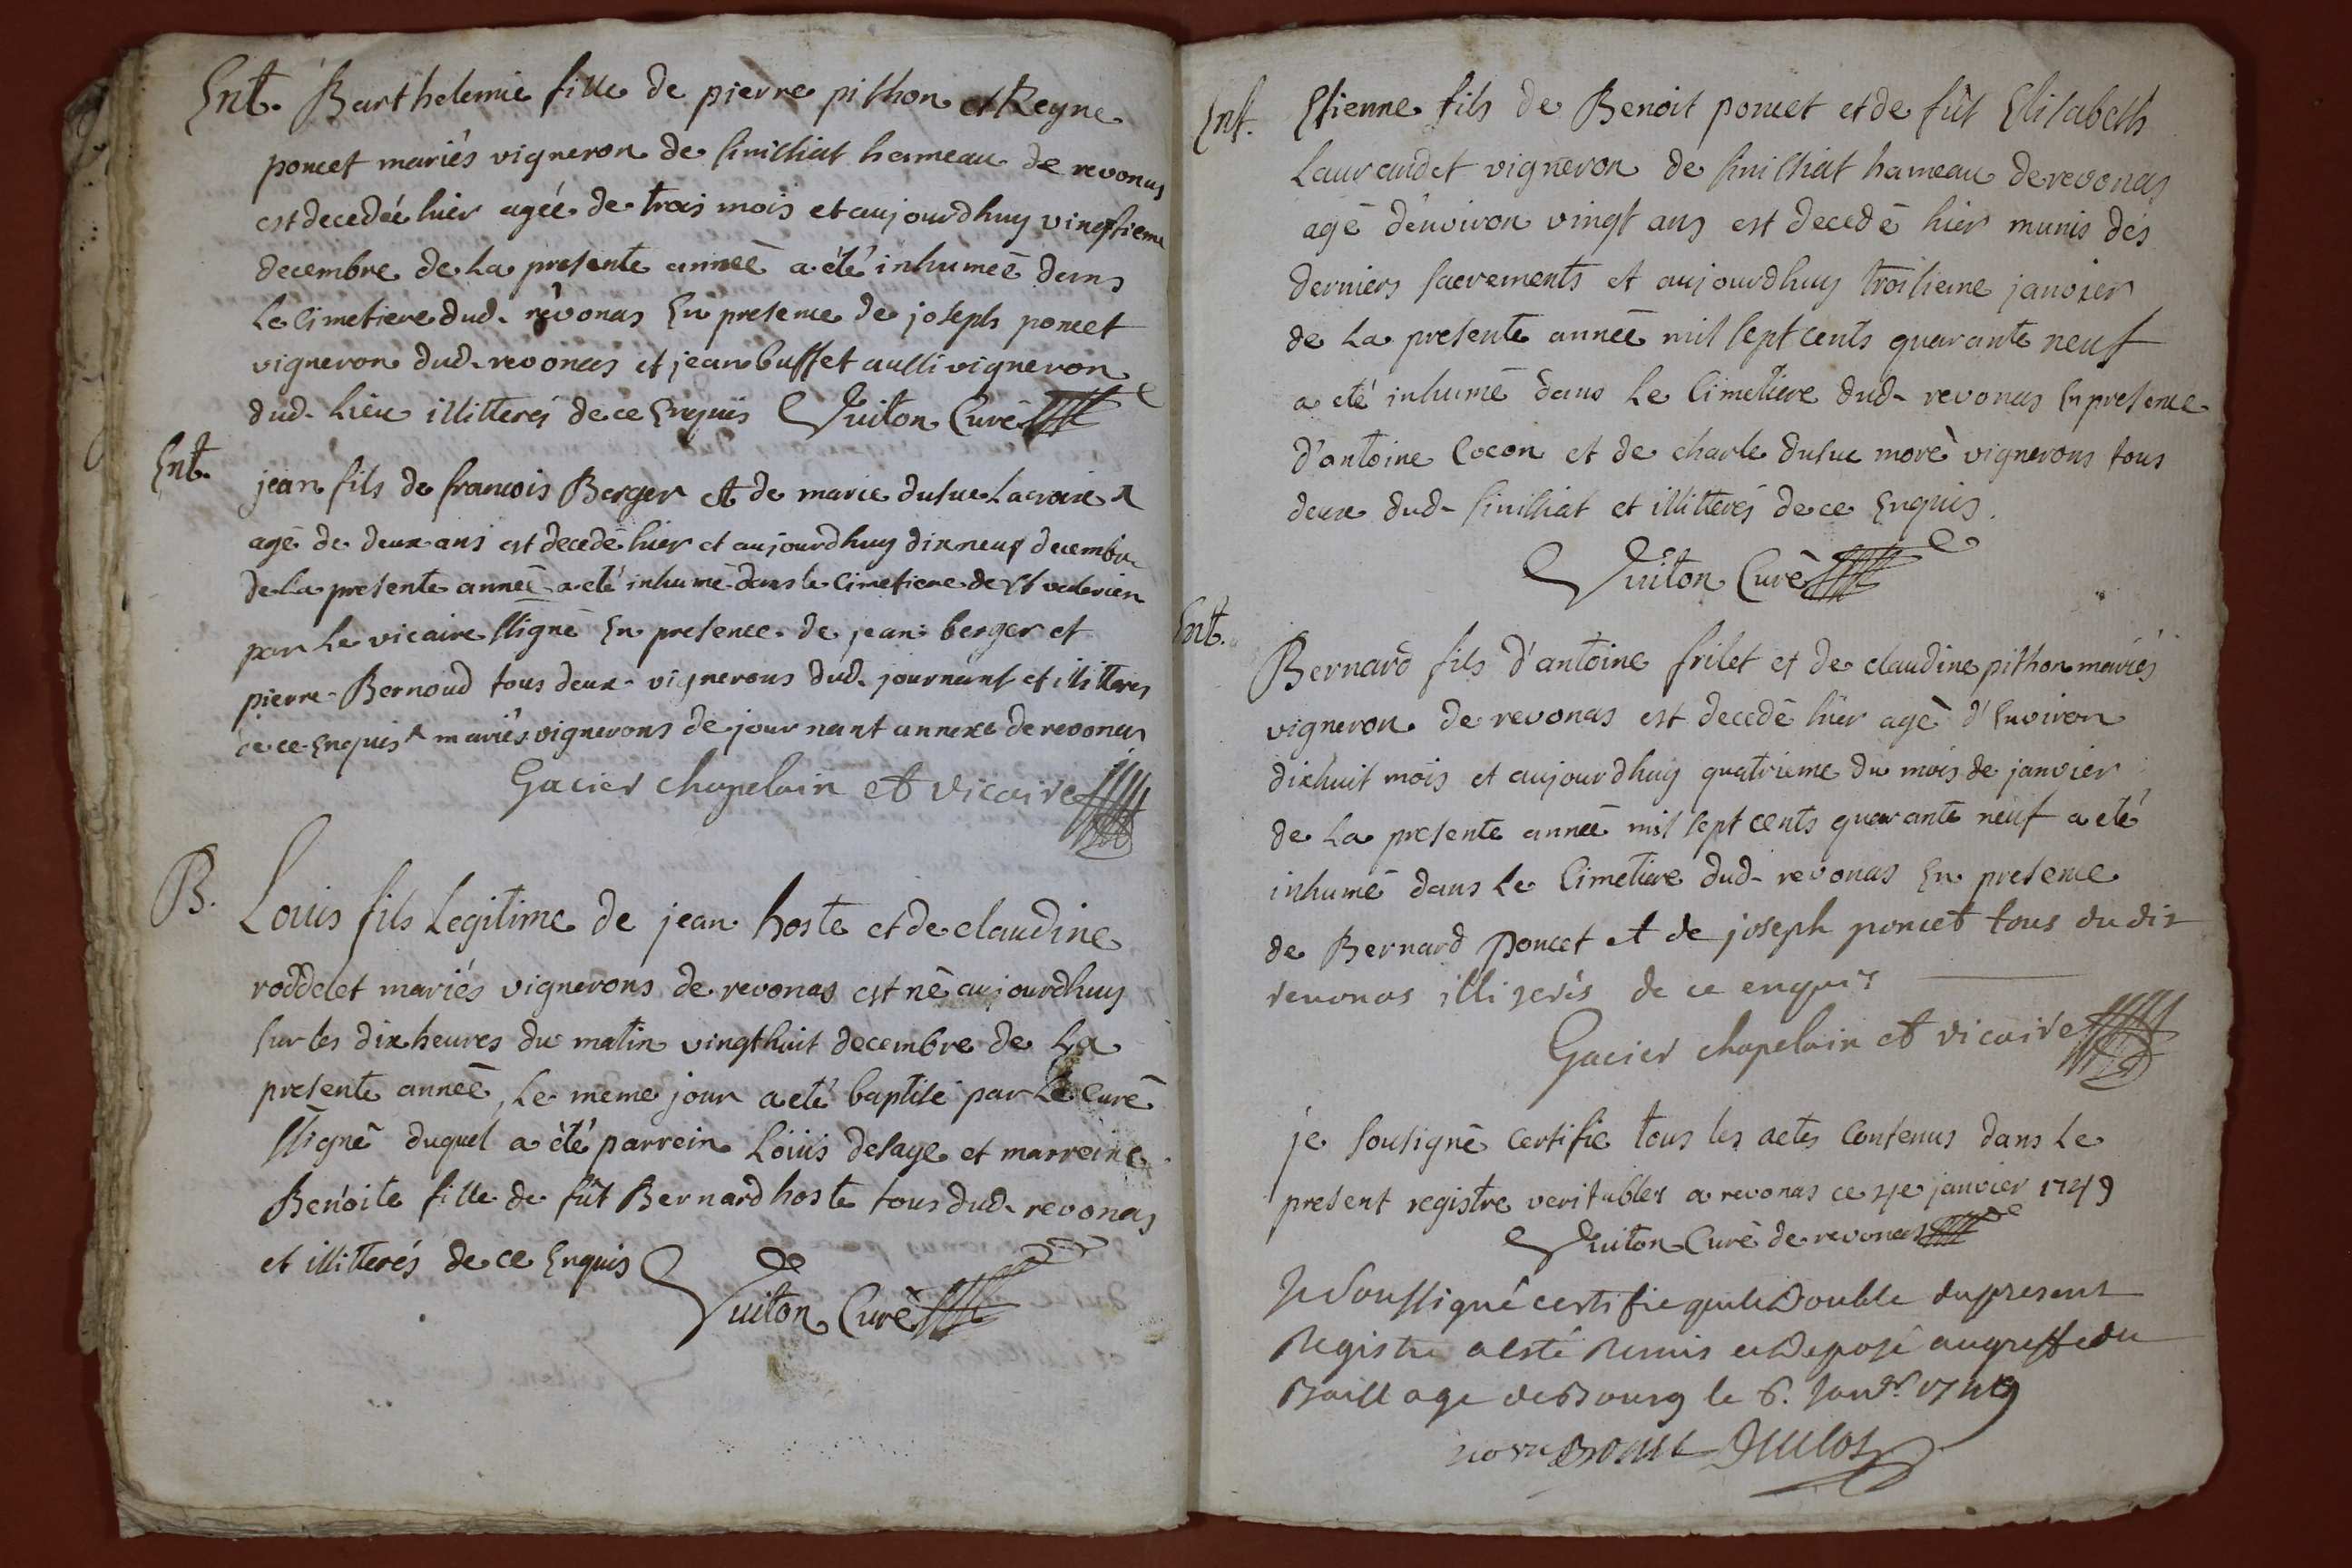 Ent. Barthelemie fille de pierre pithon et Reyne
poncet mariés vigneron de simillat hameau de revonas
est decedée hier agée de trois mois et aujourdhuy vingtieme
decembre de La presente année a été inhumée dans
Le Cimetiere dud. revonas En presence de joseph poncet
vigneron dud. revonas et jean buffet aussi vigneron
dud. Lieu illitterés de ce Enquis Vuiton Curé
Ent. jean fils de francois Berger et de marie dusuc Lacroix
agé de deux ans est decedé hier et aujourdhuy dix neuf decembre
de La presente année a été inhumé dans le Cimetiere de St valerien
par Le vicaire ssigné En presence de jean berger et
pierre Bernoud tous deux vignerons dud. journant et illitteres
de ce Enquis mariés vignerons de journant annexe de revonas
Gacier chapelain et vicaire
B. Louis fils Legitime de jean hoste et de claudine
roddelet mariés vignerons de revonas est né aujourdhuy
sur les dix heures du matin vingthuit decembre de La
presente année, Le meme jour a eté baptisé par Le Curé
ssigné duquel a été parrein Louis desaye et marreine
Benoite fille de fût Bernard hoste tous dud. revonas
et illitterés de ce Enquis
Vuiton Curé
Ent. Etienne fils de Benoit poncet et de fût Elisabeth
Laurandet vigneron de simillat hameau de revonas
agé d'environ vingt ans est decedé hier munis des
derniers sacrements et aujourdhuy troisieme janvier
de La presente année mil sept cents quarante neuf
a eté inhumé dans Le Cimetiere dud. revonas En presence
d'antoine Cocon et de charle dusuc moré vignerons tous
deux dud. simillat et illitterés de ce Enquis.
Vuiton Curé
Ent. Bernard fils d'antoine frilet et de claudine pithon mariés
vigneron de revonas est decedé hier agé d'Environ
dixhuit mois et aujourdhuy quatrieme du mois de janvier
de La presente année mil sept cents quarante neuf a eté
inhumé dans Le Cimetiere dud. revonas En presence
de Bernard poncet et de joseph poncet tous du dit
revonas illiterés de ce enquis
Gacier chapelain et vicaire
je sousigné Certifie tous les actes Contenus dans Le
present registre veritables a revonas ce 4e janvier 1749
Vuiton Curé de revonas
Je Soussigné certifie que le Double du present
Registre a esté Remis et Deposé au greffe du
Baillage de Bourg le 6. Janvr. 1749